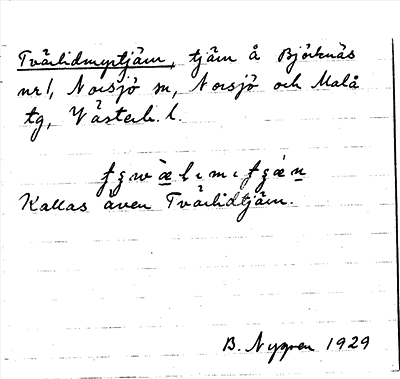 Tvärlidmyrtjärn, tjärn å Björknäs
nr 1, Norsjö sn, Norsjö och Malå
tg, Västerb. l.
Kallas även Tvärlidtjärn.
B. Nygren 1929